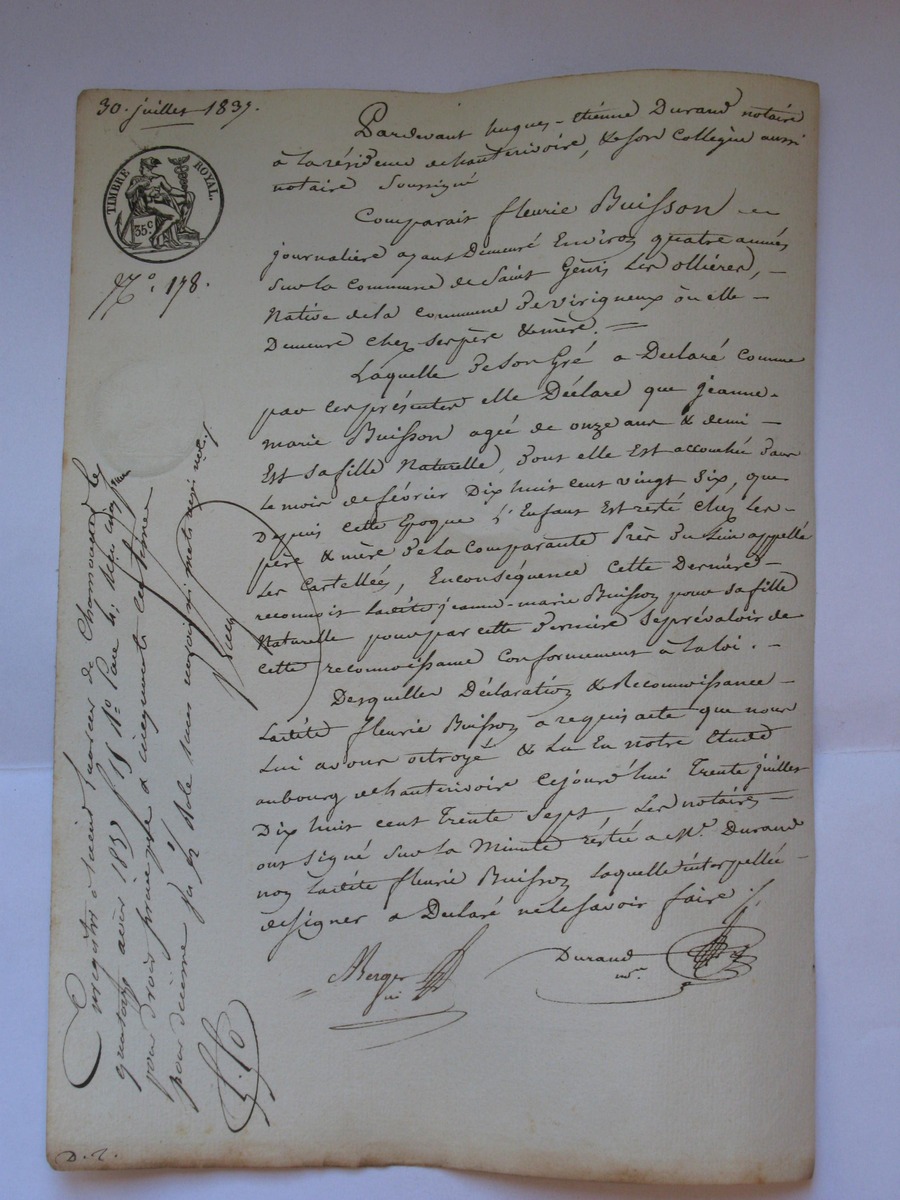 30. juillet 1837.
TIMBRE ROYAL
35c
No. 178.
Pardevant hugues-étienne Durand notaire
à la résidence de hauterivoire, & son Collègue aussi
notaire Soussigné
Comparait fleurie Buisson
journalière ayant Demeuré Environ quatre années
Sur la Commune de Saint Genis Les ollières,
Native de la Commune de virigneux où elle
Demeure chez ses père & mère.
Laquelle de Son Gré a Déclaré comme
par ces présentes elle Déclare que jeanne-
marie Buisson agée de onze ans & demi
Est sa fille Naturelle, dont elle Est accouchée dans
le mois de février Dix huit cent vingt Six, que
Depuis cette Epoque l'Enfant Est resté chez les
père & mère de la Comparante Près du Lieu appellé
Les Cartellées, En conséquence cette Dernière
reconnoit ladite jeanne-marie Buisson pour sa fille
Naturelle pour par cette dernière se prévaloir de
cette reconnoissance Conformément à la loi.
Desquelles Déclaration & Reconnoissance
Ladite fleurie Buisson a requis acte que nous
Lui avons octroyé & Lu En notre Etude
au bourg de hauterivoire Cejourd'hui Trente juillet
Dix huit cent Trente Sept. Les notaires
ont Signé Sur la Minute restée a Me. Durand
non ladite fleurie Buisson laquelle interpellée
de signer a Déclaré ne le savoir faire.
ABerger
Durand
Enregistré à Saint Laurent de Chamousset le
août 1837 f. 15 Ro
pour droit principal cinquante centimes
pour décime
D. R.